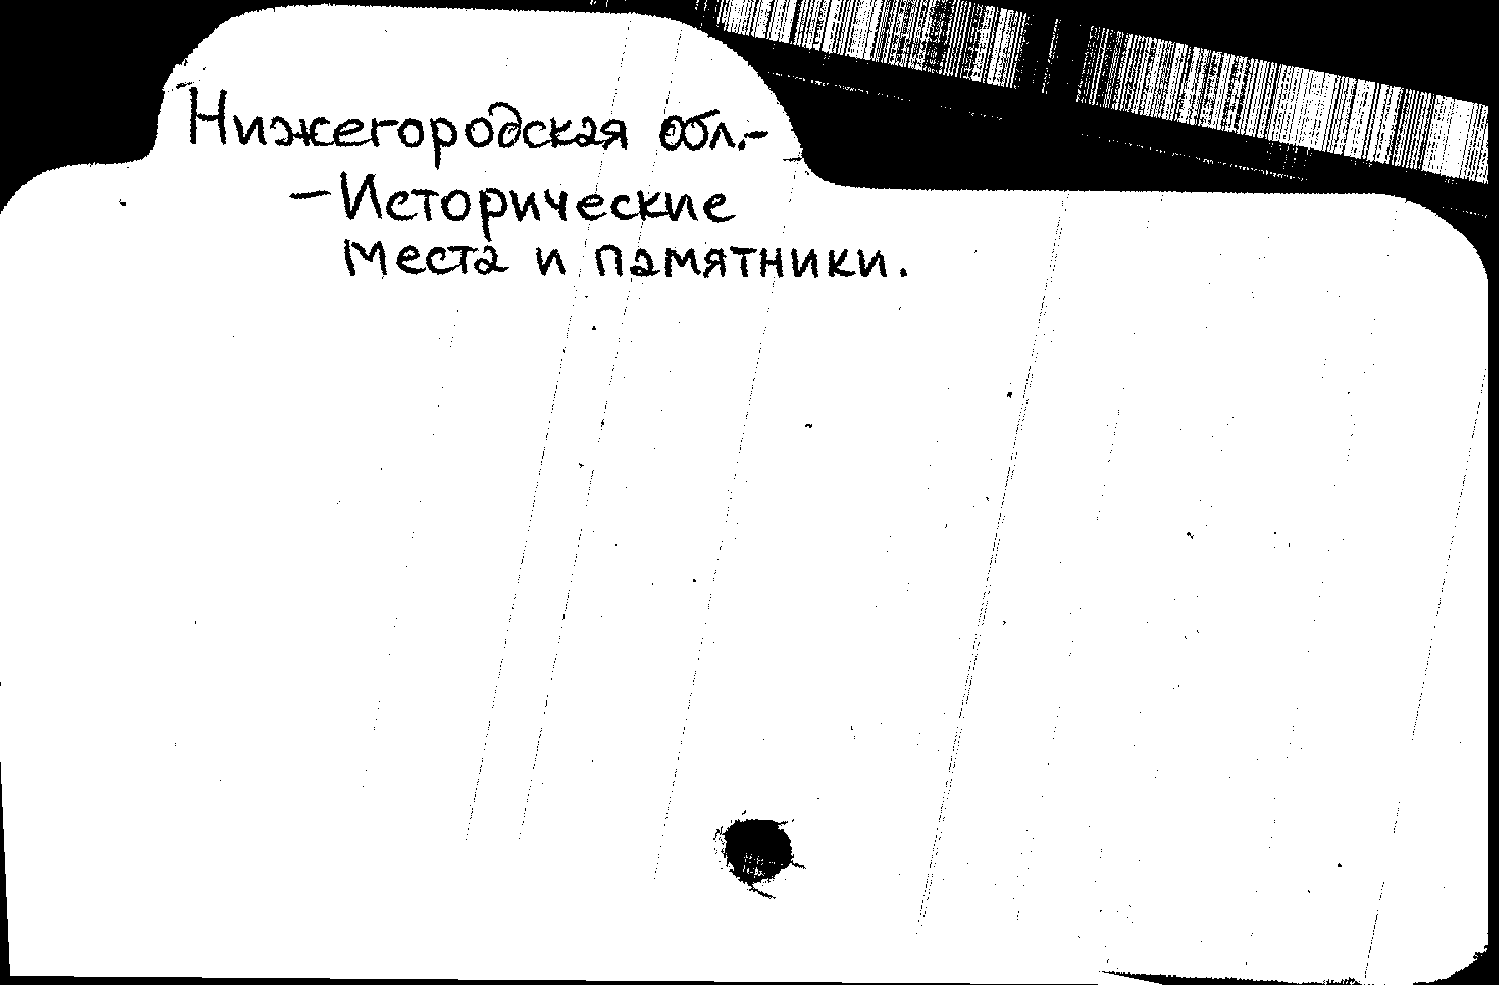 Нижегородская обл.-
—Исторические
места и памятники.